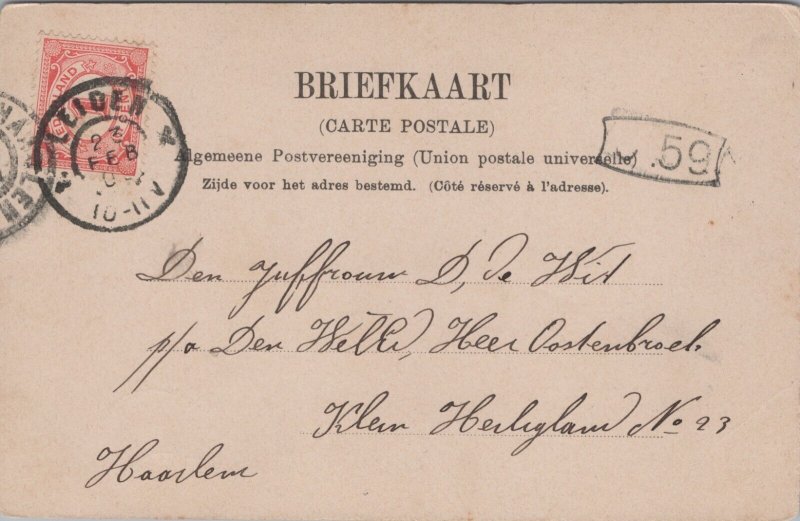 BRIEFKAART
(CARTE POSTALE)
Algemeene Postvereeniging (Union postale universelle)
Zijde voor het adres bestemd. (Côté réservé à l'adresse).
LEIDEN
2
FEB
10-11V
59
Den Juffrouw D, de Wit
p/a Den WelEd, Heer Oostenbroek
Klein Heiligland No 23
Haarlem